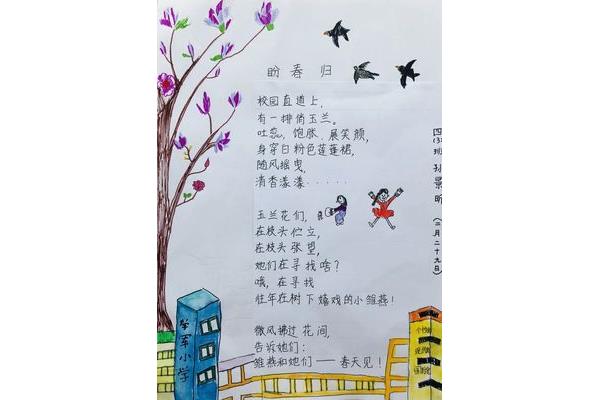 盼春归
校园直道上,
有一排俏玉兰。
吐蕊,饱胀,展笑颜,
身穿白粉色莲蓬裙,
随风摇曳,
清香漾漾······
玉兰花们,
在枝头伫立,
在枝头张望,
她们在寻找啥?
哦,在寻找
往年在树下嬉戏的小雏燕!
微风拂过花间,
告诉她们:
雏燕和她们——春天见!
四(3)班 孙景昕 (二月二十九日)
学军小学